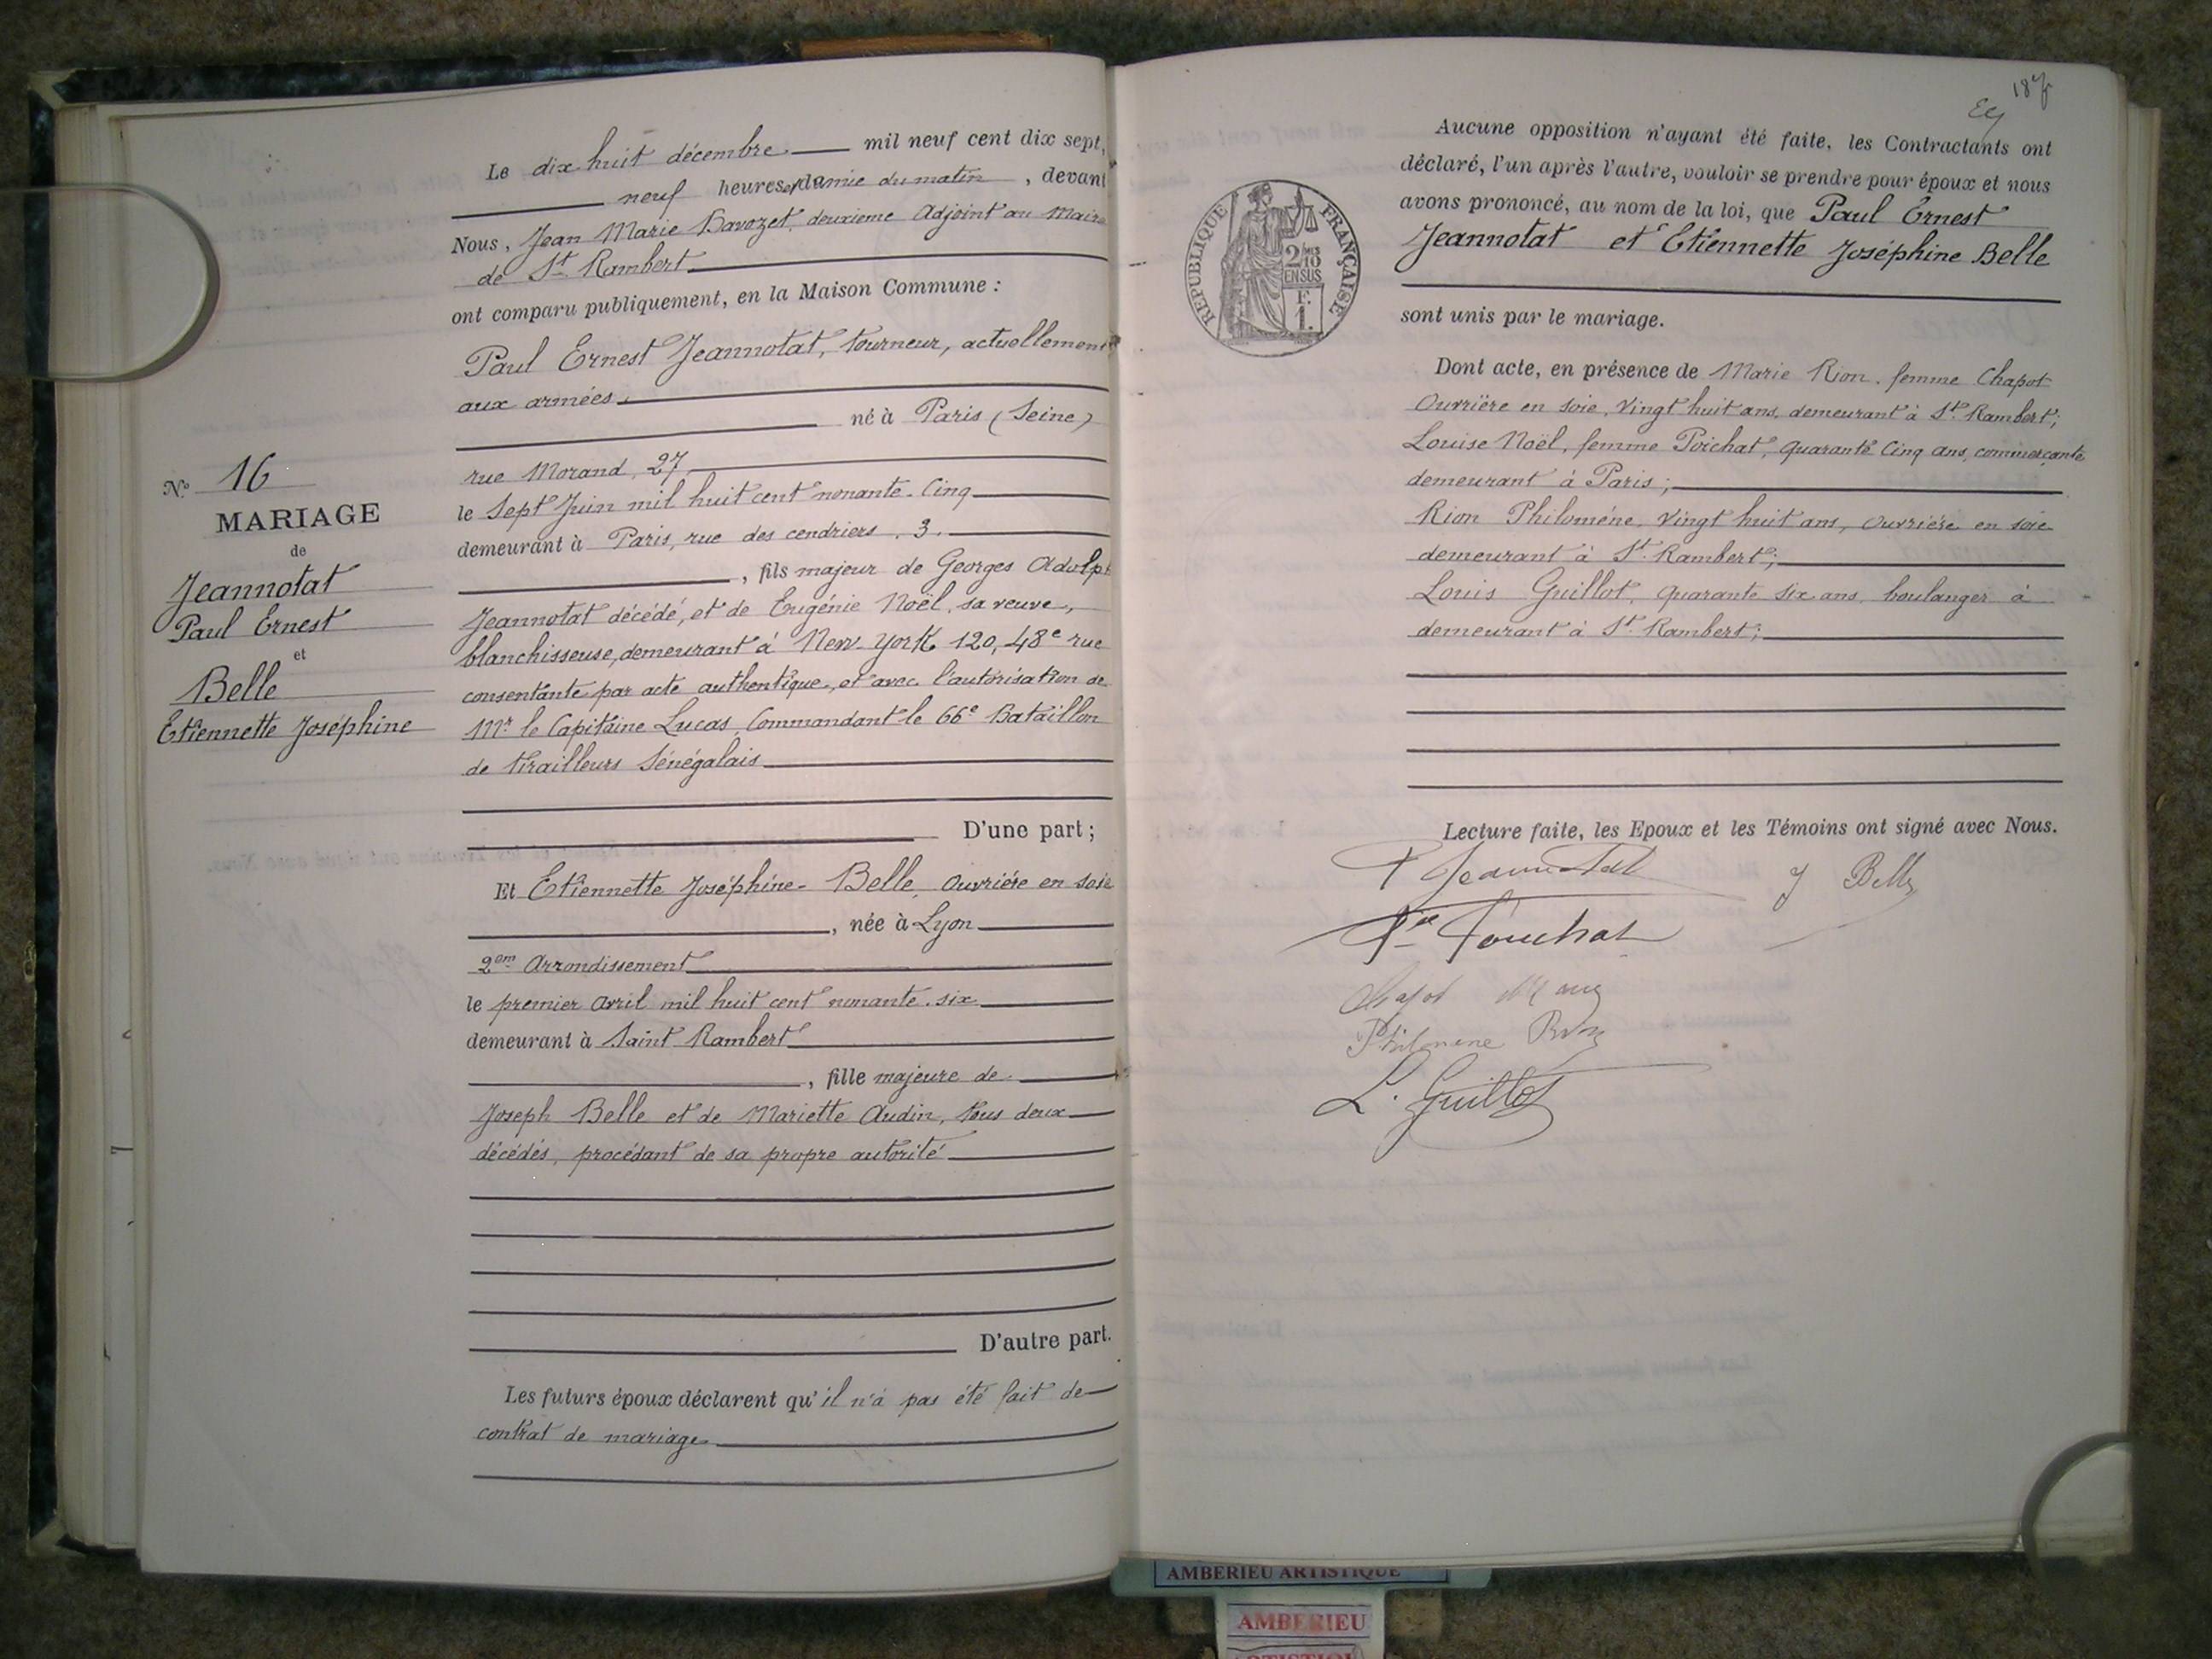 Le dix huit décembre mil neuf cent dix sept,
neuf heures et demie du matin, devant
Nous, Jean Marie Davozet, deuxième Adjoint au Maire
de St Rambert
ont comparu publiquement, en la Maison Commune :
Paul Ernest Jeannotat, tourneur, actuellement
aux armées
né à Paris (Seine)
rue Morand, 27
le Sept Juin mil huit cent nonante-Cinq
demeurant à Paris, rue des cendriers, 3,
, fils majeur de Georges Adolphe
Jeannotat décédé, et de Eugénie Noël, sa veuve,
blanchisseuse, demeurant à New-York 120, 48e rue
consentante par acte authentique, et avec l'autorisation de
Mr le Capitaine Lucas, Commandant le 66e Bataillon
de tirailleurs Sénégalais
D'une part ;
Et Etiennette Joséphine Belle, Ouvrière en soie
, née à Lyon
2em Arrondissement
le premier Avril mil huit cent nonante-six
demeurant à Saint Rambert
, fille majeure de
Joseph Belle et de Mariette Audin, tous deux
décédés, procédant de sa propre autorité
D'autre part.
Les futurs époux déclarent qu'il n'a pas été fait de
contrat de mariage
No 16
MARIAGE
de
Jeannotat
Paul Ernest
et
Belle
Etiennette Joséphine
187
Aucune opposition n'ayant été faite, les Contractants ont
déclaré, l'un après l'autre, vouloir se prendre pour époux et nous
avons prononcé, au nom de la loi, que Paul Ernest
Jeannotat et Etiennette Joséphine Belle
sont unis par le mariage.
REPUBLIQUE FRANÇAISE
2/10
EN SUS
F.
1.
Dont acte, en présence de Marie Rion, femme Chapot
Ouvrière en soie, Vingt huit ans, demeurant à St Rambert ;
Louise Noël, femme Poichat, quarante Cinq ans, commerçante
demeurant à Paris ;
Rion Philomène, Vingt huit ans, Ouvrière en soie
demeurant à St Rambert ;
Louis Guillot, quarante six ans, boulanger à
demeurant à St Rambert ;
Lecture faite, les Epoux et les Témoins ont signé avec Nous.
P Jeannotat
J Belle
Chapot Marie
Philomene Rion
L. Guillot
AMBERIEU ARTISTIQUE
AMBERIEU
ARTISTIQUE